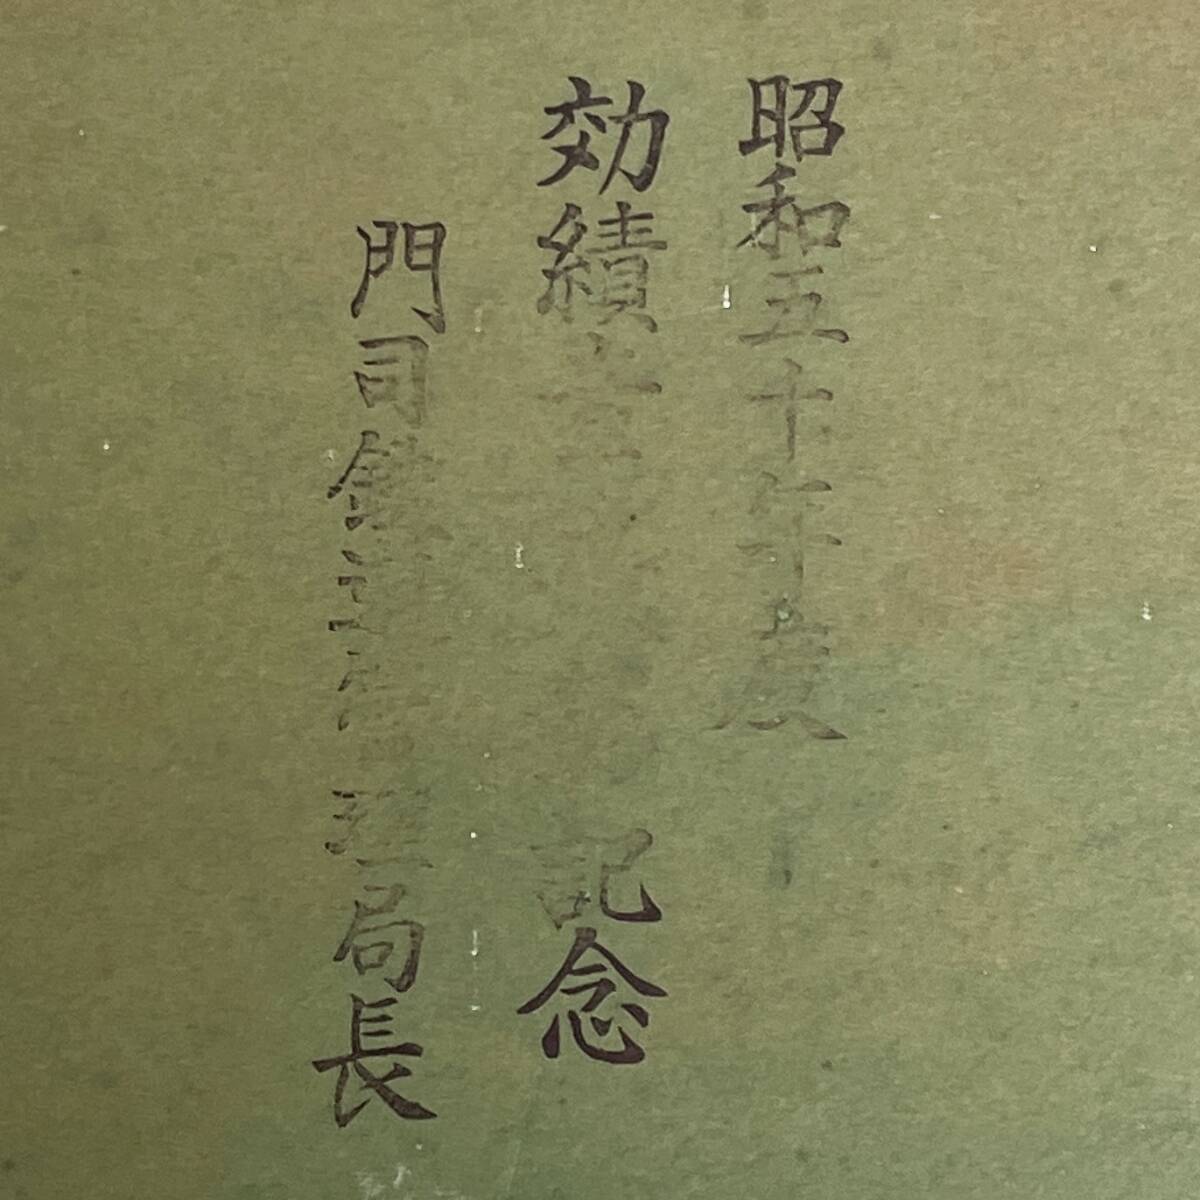 昭和五十年度
効績章 記念
門司鉄道管理局長